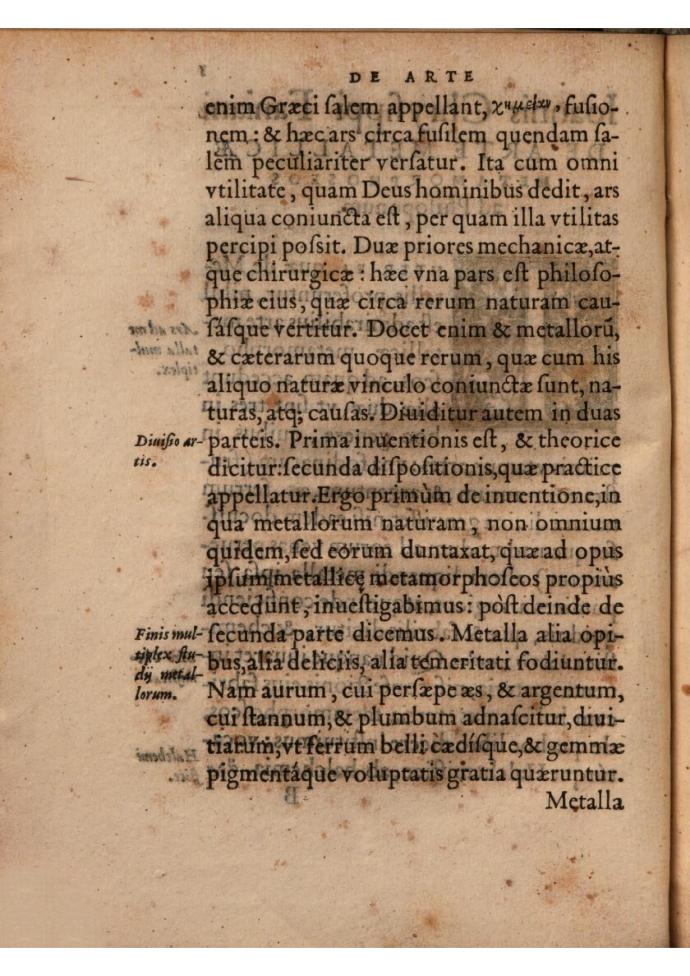 DE ARTE
enim Græci ſalem appellant, fuſio-
nem: & hæc ars circa fuſilem quendam ſa-
lem peculiariter verſatur. Ita cum omni
vtilitate, quam Deus hominibus dedit, ars
aliqua coniuncta eſt, per quam illa vtilitas
percipi poſsit. Duæ priores mechanicæ, at-
que chirurgicæ: hæc vna pars eſt philoſo-
phiæ eius, quæ circa rerum naturam cau-
ſáſque vertitur. Docet enim & metallorũ,
& cæterarum quoque rerum, quæ cum his
aliquo naturæ vinculo coniunctæ ſunt, na-
turas, atq; cauſas. Diuiditur autem in duas
Diuiſio ar-
tis.
parteis. Prima inuentionis eſt, & theorice
dicitur: ſecunda diſpoſitionis, quæ practice
appellatur. Ergo primùm de inuentione, in
qua metallorum naturam, non omnium
quidem, ſed eorum duntaxat, quæ ad opus
ipſum metallicę metamorphoſeos propiùs
accedunt, inueſtigabimus: pòſt deinde de
Finis mul-
tiplex ſtu-
dij metal-
lorum.
ſecunda parte dicemus. Metalla alia opi-
bus, alia deliciis, alia temeritati fodiuntur.
Nam aurum, cui perſæpe æs, & argentum,
cui ſtannum, & plumbum adnaſcitur, diui-
tiarum, vt ferrum belli cædíſque, & gemmæ
pigmentáque voluptatis gratia quæruntur.
Metalla